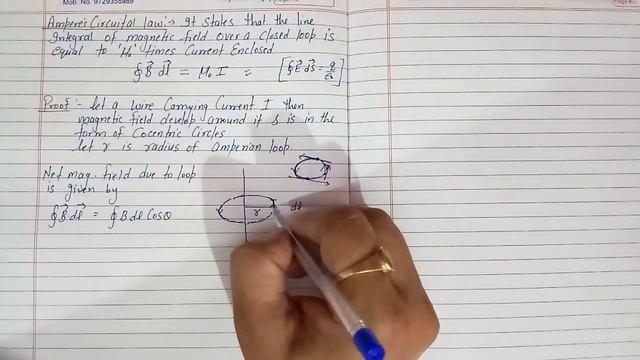 Mob. No. 9729358989
Ampere's Circuital law:→ It states that the line
Integral of magnetic field over a closed loop is
equal to 'μ₀' times Current Enclosed
∮B⃗ d⃗l = μ₀ I = [∮E⃗ d⃗s = q/ε₀]
Proof:- let a wire Carrying Current I then
magnetic field develop around it & is in the
form of Cocentric Circles
let r is radius of amperian loop.
Net mag. field due to loop
is given by
∮B⃗ d⃗l = ∮ B dl Cosθ
r
dl